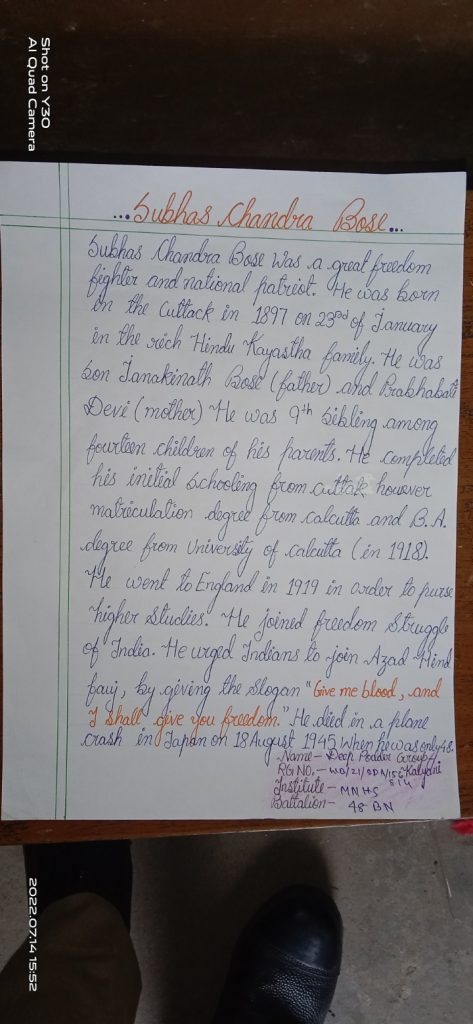 Shot on Y30
AI Quad Camera
...Subhas Chandra Bose...
Subhas Chandra Bose was a great freedom
fighter and national patriot. He was born
in the Cuttack in 1897 on 23rd of January
in the rich Hindu Kayastha family. He was
son Janakinath Bose (father) and Prabhabati
Devi (mother) He was 9th sibling among
fourteen children of his parents. He completed
his initial schooling from cuttak however
matriculation degree from calcutta and B.A.
degree from University of calcutta (in 1918).
He went to England in 1919 in order to purse
higher studies. He joined freedom struggle
of India. He urged Indians to join Azad Hind
fauj, by giving the slogan "Give me blood, and
I shall give you freedom." He died in a plane
crash in Japan on 18 August 1945 when he was only 48.
Name - Deep Poddar Group -
RGI NO. - Kalyani
Institute - MNHS
Battalion - 48 BN
2022.07.14 15:52